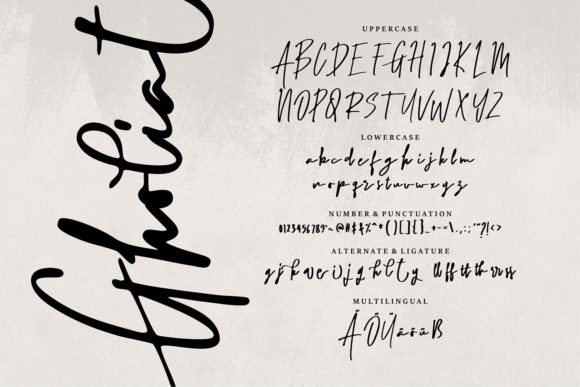 Gholiat
UPPERCASE
ABCDEFGHIJKLM
NOPQRSTUVWXYZ
LOWERCASE
abcdefghijklm
nopqrstuvwxyz
NUMBER & PUNCTUATION
0123456789~@#$%^*(){}[]_+-=\.,:;'"?!<>
ALTERNATE & LIGATURE
MULTILINGUAL
ÄÖÜäöüß